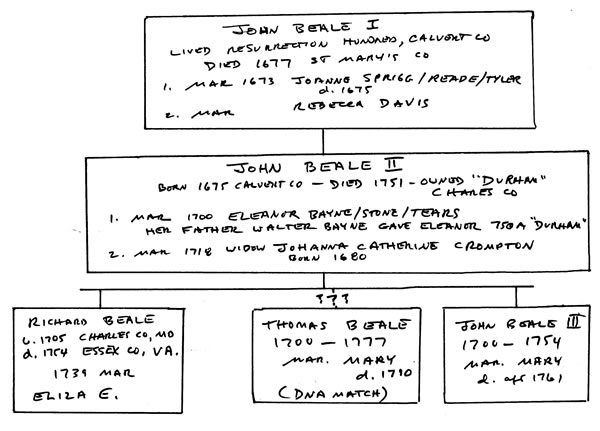 JOHN BEALE I
LIVED RESURRECTION HUNDRED, CALVERT CO
DIED 1677 ST MARY'S CO
1. MAR 1673 JOANNE SPRIGG/READE/TYLER
d. 1675
2. MAR REBECCA DAVIS
JOHN BEALE II
BORN 1675 CALVERT CO — DIED 1751 - OWNED "DURHAM"
CHARES CO
1. MAR 1700 ELEANOR BAYNE/STONE/TEARS
HER FATHER WALTER BAYNE GAVE ELEANOR 750A "DURHAM"
2. MAR 1718 WIDOW JOHANNA CATHERINE CROMPTON
BORN 1680
???
RICHARD BEALE
b. 1705 CHARLES CO, MD
d. 1754 ESSEX CO, VA.
1739 MAR
ELIZA E.
THOMAS BEALE
1700 — 1777
MAR. MARY
d. 1790
(DNA MATCH)
JOHN BEALE III
1700 — 1754
MAR. MARY
d. aft 1761